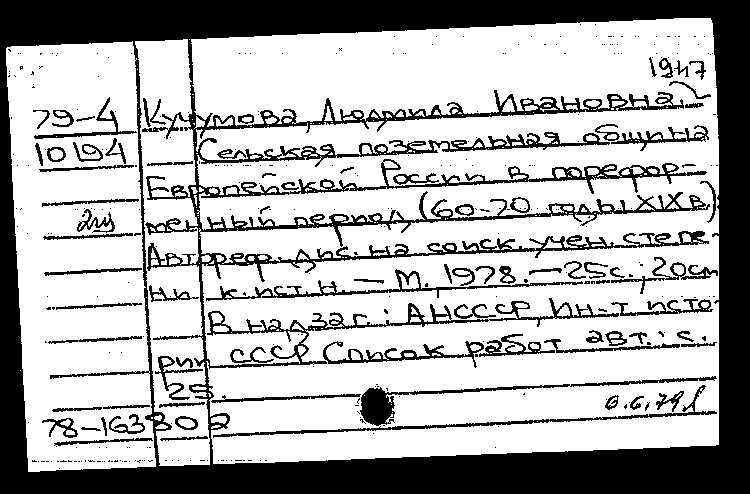 1947
79-4 Кучумова, Людмила Ивановна.
10194 Сельская поземельная община
Европейской России в порефор-
2 менный период (60-70 годы XIX в.)
Автореф. дис. на соиск. учен. степе-
ни к. ист. н. — М., 1978. — 25с.; 20см
В надзаг.: АН СССР, Ин-т исто-
рии СССР Список работ авт.: с.
25.
78-163802